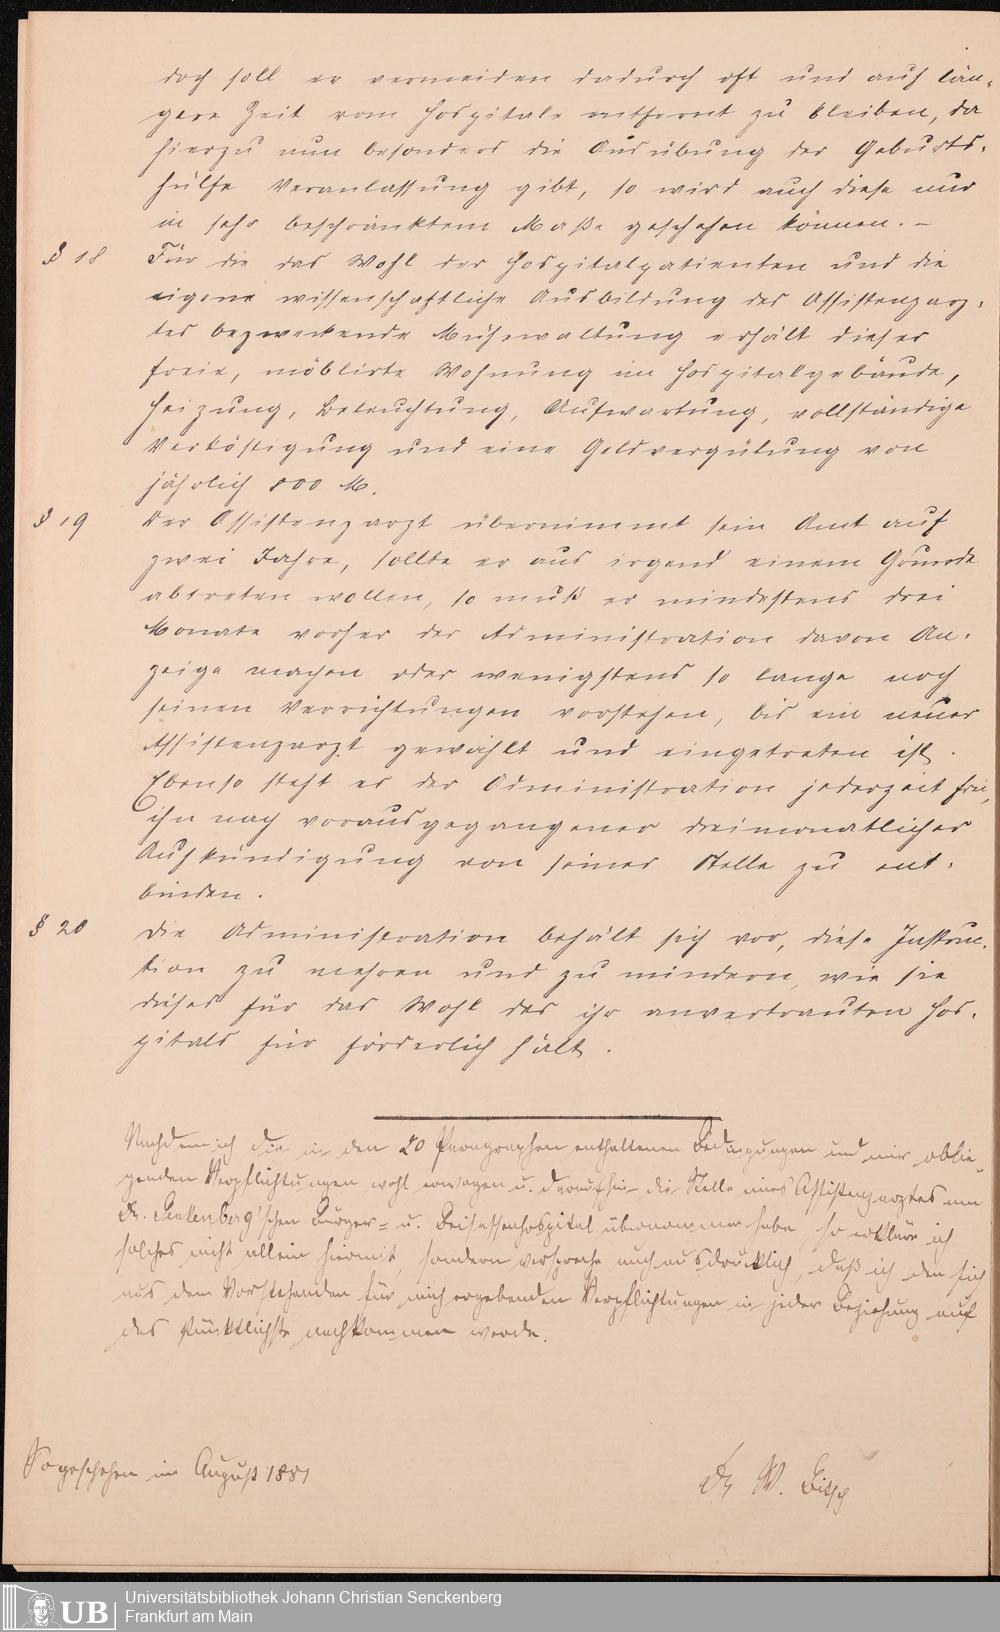 doch soll er vermeiden dadurch oft und auf län-
gere Zeit vom Hospitale entfernt zu bleiben, da
hierzu nun besonders die Ausübung der Geburts-
hülfe Veranlassung gibt, so wird auch diese nur
in sehr beschränktem Maße geschehen können. –
§ 18 Für die das Wohl der Hospitalpatienten und die
eigene wissenschaftliche Ausbildung des Assistenzarz-
tes bezweckende Mühewaltung erhält dieser
freie, möblirte Wohnung im Hospitalgebäude,
Heizung, Beleuchtung, Aufwartung, vollständige
Verköstigung und eine Geldvergütung von
jährlich 800 M.
§ 19 Der Assistenzarzt übernimmt sein Amt auf
zwei Jahre, sollte er aus irgend einem Grunde
abtreten wollen, so muß er mindestens drei
Monate vorher der Administration davon An-
zeige machen oder wenigstens so lange noch
seinen Verrichtungen vorstehen, bis ein neuer
Assistenzarzt gewählt und eingetreten ist.
Ebenso steht es der Administration jederzeit frei,
ihn nach vorausgegangener dreimonatlicher
Aufkündigung von seiner Stelle zu ent-
binden.
§ 20 Die Administration behält sich vor, diese Instruc-
tion zu mehren und zu mindern, wie sie
dieses für das Wohl des ihr anvertrauten Hos-
pitals für förderlich hält.
Nachdem ich die in den 20 Paragraphen enthaltenen Bedingungen und mir oblie-
genden Verpflichtungen wohl erwogen u. daraufhin die Stelle eines Assistenzarztes am
Dr. Senkenberg'schen Bürger- u. Beisassenhospital übernommen habe, so erkläre ich
solches nicht allein hiermit, sondern verspreche auch ausdrücklich, daß ich den sich
aus dem Vorstehenden für mich ergebenden Verpflichtungen in jeder Beziehung auf
das Pünktlichste nachkommen werde.
So geschehen im August 1881
Dr W. Bitsch
UB Universitätsbibliothek Johann Christian Senckenberg
Frankfurt am Main